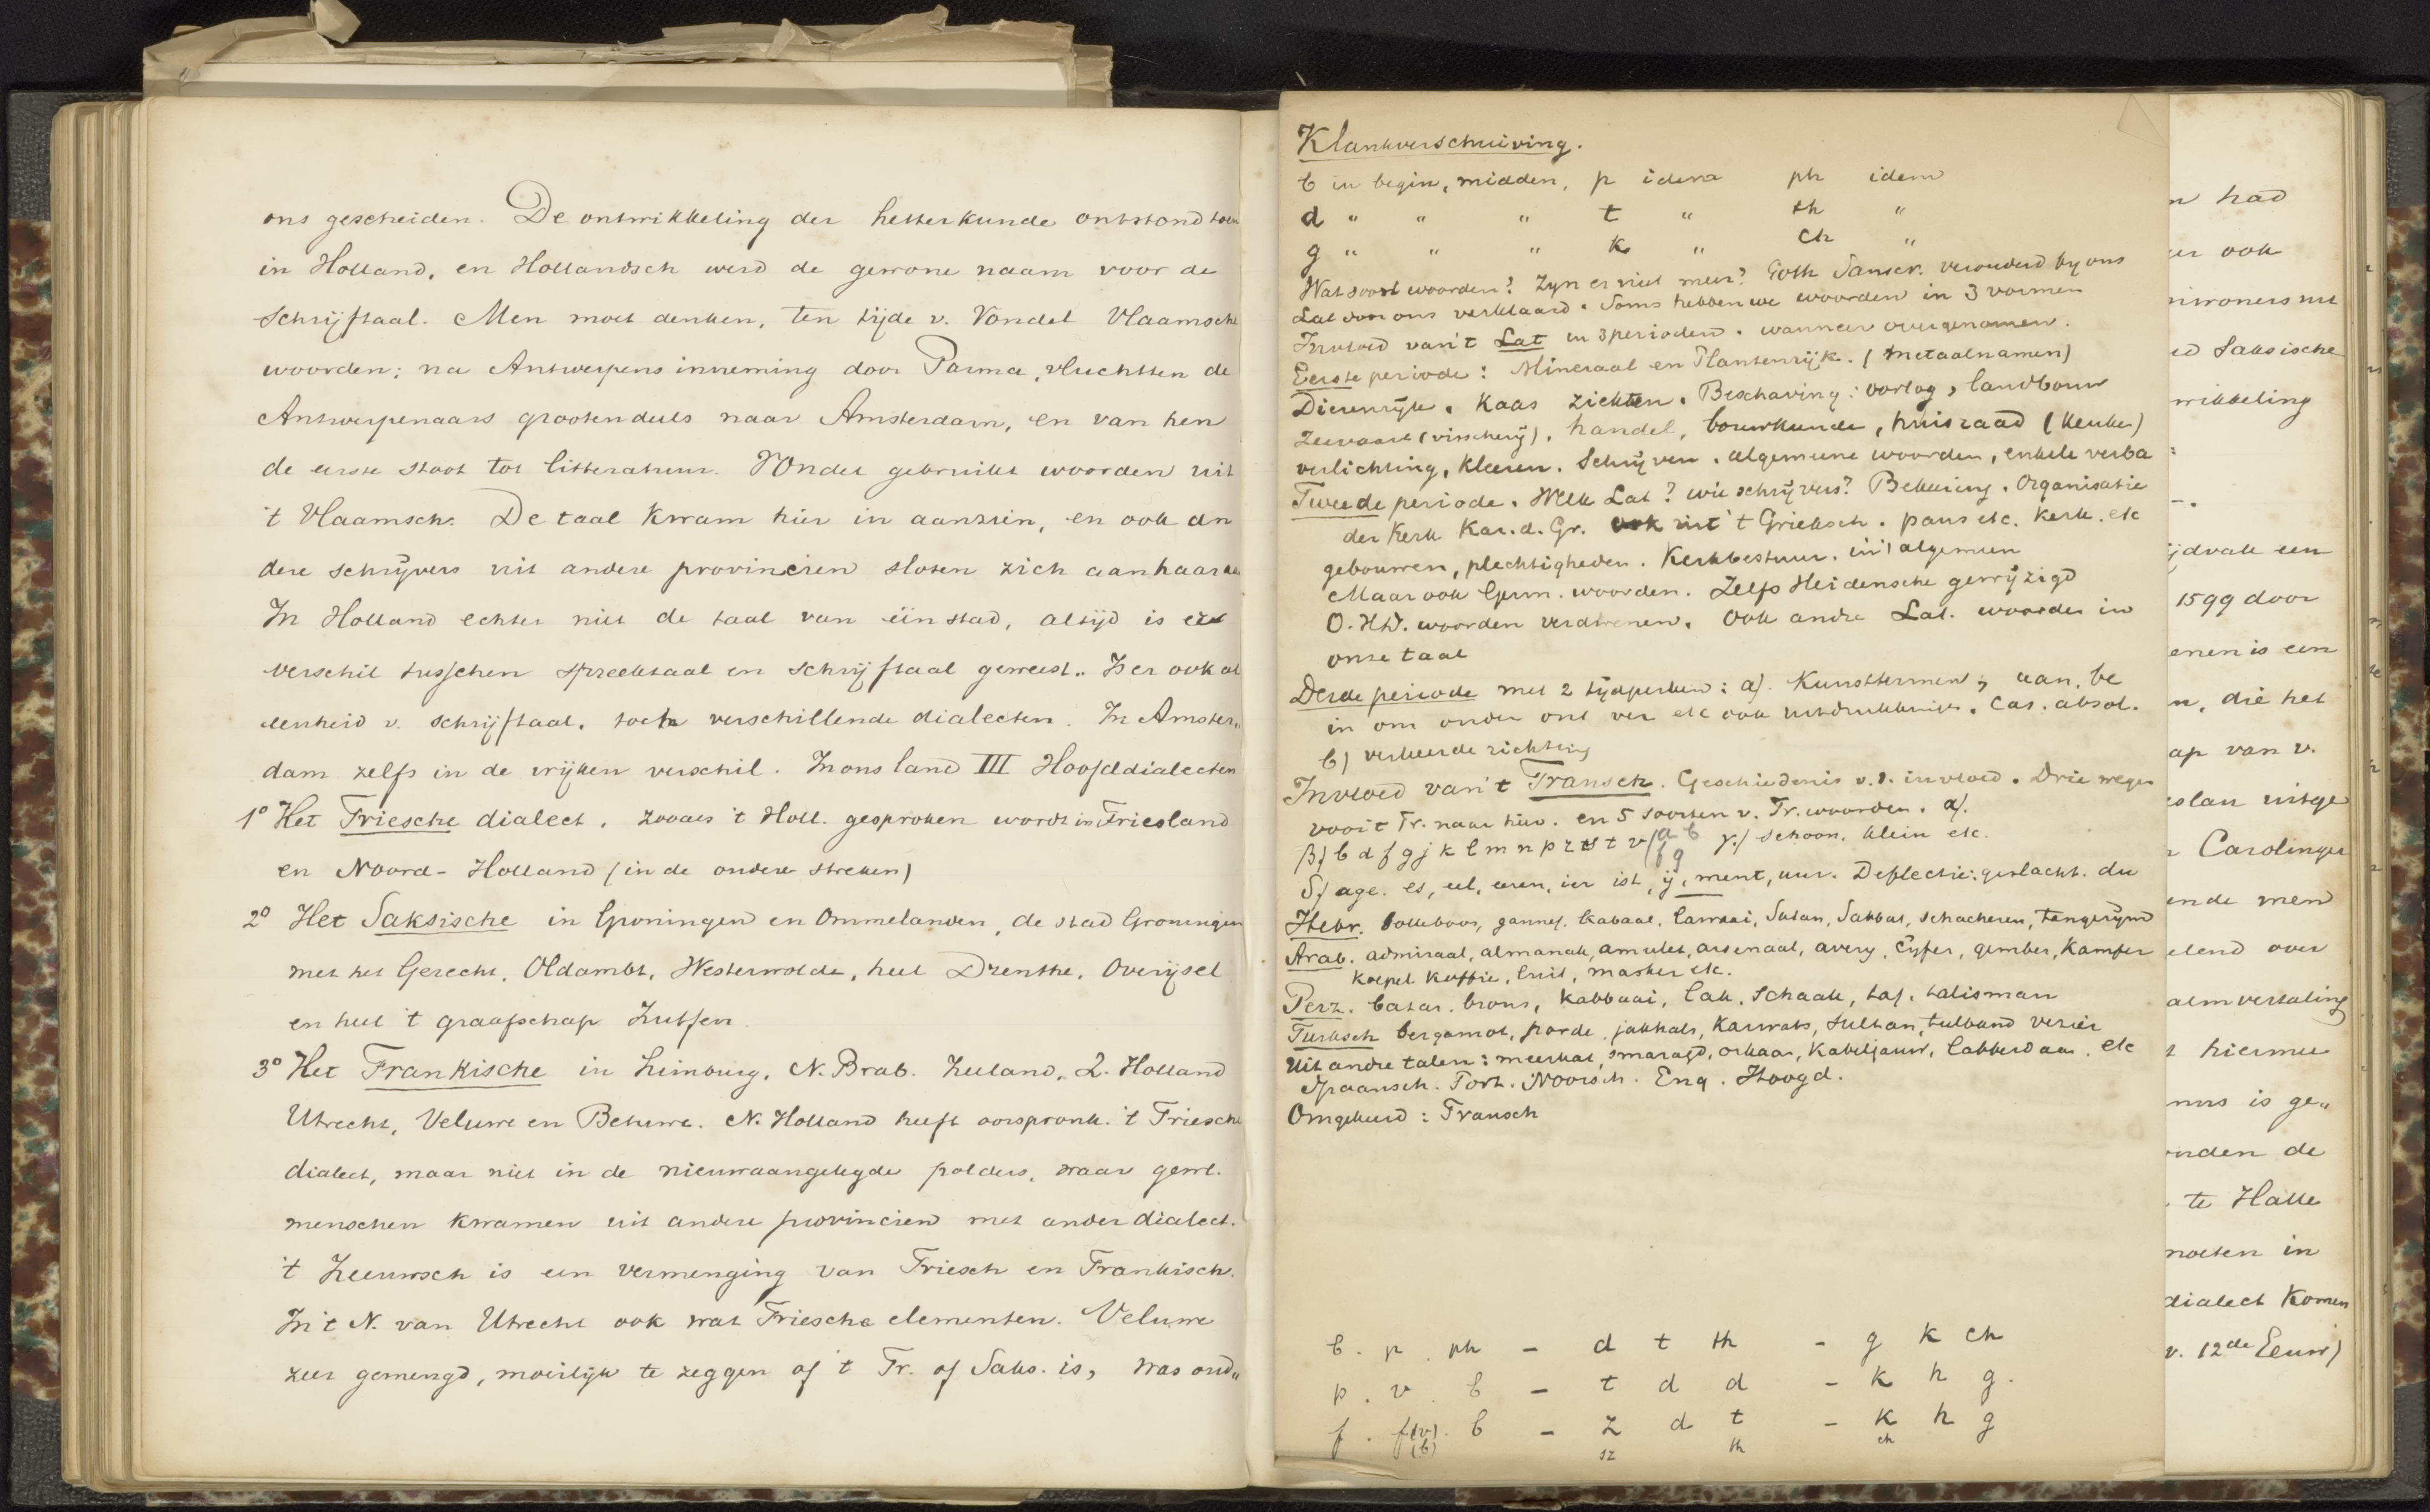 ons gescheiden. De ontwikkeling der letterkunde ontstond toen
in Holland, en Hollandsch werd de gewone naam voor de
Schrijftaal. Men moet denken, ten tijde v. Vondel Vlaamsche
woorden; na Antwerpens inneming door Parma, vluchtten de
Antwerpenaars grootendeels naar Amsterdam, en van hen
de eerste stoot tot litteratuur. Vondel gebruikt woorden uit
't Vlaamsch. De taal kwam hier in aanzien, en ook an
dere schrijvers uit andere provincien sloten zich aan haar
In Holland echter niet de taal van één stad, altijd is
verschil tusschen spreektaal en schrijftaal geweest. Is er ook al
eenheid v. schrijftaal, toch verschillende dialecten. In Amster„
dam zelfs in de wijken verschil. In ons land III Hoofddialecten
1° Het Friesche dialect, zooals 't Holl. gesproken wordt in Friesland
en Noord-Holland (in de andere streken)
2° Het Saksische in Groningen en Ommelanden, de stad Groningen
met het Gerecht, Oldambt, Westerwolde, heel Drenthe, Overijsel
en heel 't graafschap Zutfen.
3° Het Frankische in Limburg, N. Brab. Zeeland, Z. Holland
Utrecht, Veluwe en Betuwe. N. Holland heeft oorspronk. 't Friesche
dialect, maar niet in de nieuwaangelegde polders, waar gewl.
menschen kwamen uit andere provincien met ander dialect.
't Zeeuwsch is een vermenging van Friesch en Frankisch.
In 't N. van Utrecht ook wat Friesche elementen. Veluwe
zeer gemengd, moeilijk te zeggen of 't Fr. of Saks. is, was oud„
Klankverschuiving.
b in begin, midden, p idem ph idem
d " " " t " th "
g " " " k " ch "
Wat soort woorden? Zyn er niet meer? Goth Sanscr. verouderd by ons
Lat door ons verklaard. Soms hebben we woorden in 3 vormen
Invloed van 't Lat in 3 perioden. wanneer overgenomen.
Eerste periode: Mineraal en Plantenrijk. (metaalnamen)
Dierenrijk. Kaas ziekten. Beschaving: oorlog, landbouw
Zeevaart (visscherij), handel, bouwkunde, huisraad (keuken)
verlichting, kleeren. Schrijven. algemeene woorden, enkele verba
Tweede periode. Welk Lat? wie schrijvers? Bekeering. Organisatie
der Kerk Kar. d. Gr. ook uit 't Grieksch. paus etc. Kerk. etc
gebouwen, plechtigheden. Kerkbestuur. in 't algemeen
Maar ook Germ. woorden. Zelfs Heidensche gewijzigd
O. Hd. woorden verdwenen. Ook andre Lat. woorden in
onze taal
Derde periode met 2 tijdperken: a). Kunsttermen, aan, be
in om onder ont ver etc ook uitdrukkingen. Cas. absol.
b) verkeerde richting
Invloed van 't Fransch. Geschiedenis v. d. invloed. Drie wegen
voor 't Fr. naar hier. en 5 soorten v. Fr. woorden. α).
β) b d f g j k l m n p r s t v (a b f g γ.) schoon. klein etc.
δ) age. es, eel, eeren, ier ist, ij, ment, uur. Deflectie: geslacht. du
Hebr. bolleboos, gannef. Kabaal, lawaai, Satan, Sabbat, schacheren,
Arab. admiraal, almanak, amulet, arsenaal, avery, Cyfer, gember, Kamfer
Koepel Koffie, luit, masker etc.
Perz. bazar. brons, Kabbaai, lak, Schaak, taf, talisman
Turksch bergamot, horde, jakhals, Karwats, sultan, tulband vezier
Uit andre talen: meerkat, smaragd, orkaan, Kabeljauw, labberdaan. etc
Spaansch. Port. Noorsch. Eng. Hoogd.
Omgekeerd: Fransch
b. p. ph - d t th - g k ch
p. v. b - t d d - k h g.
f. f(v). b - z d t - k h g
(b) sz th ch
n had
er ook
inwoners met
ed Saksische
wikkeling
:
-.
ijdvak een
1599 door
enen is een
n, die het
ap van v.
slau uitge
r Carolinger
ende men
elend over
alm vertaling
t hiermee
nus is ge„
nden de
te Halle
noeten in
dialect komen
v. 12de Eeuw)